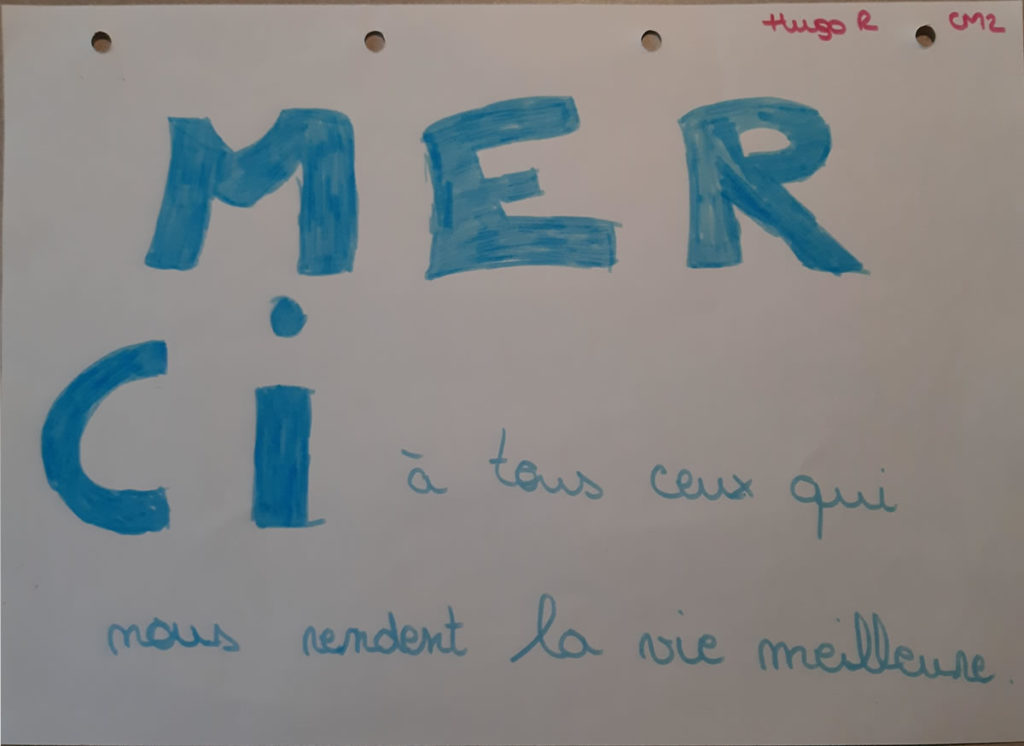 Hugo R CM2
MER
Ci à tous ceux qui
nous rendent la vie meilleure.